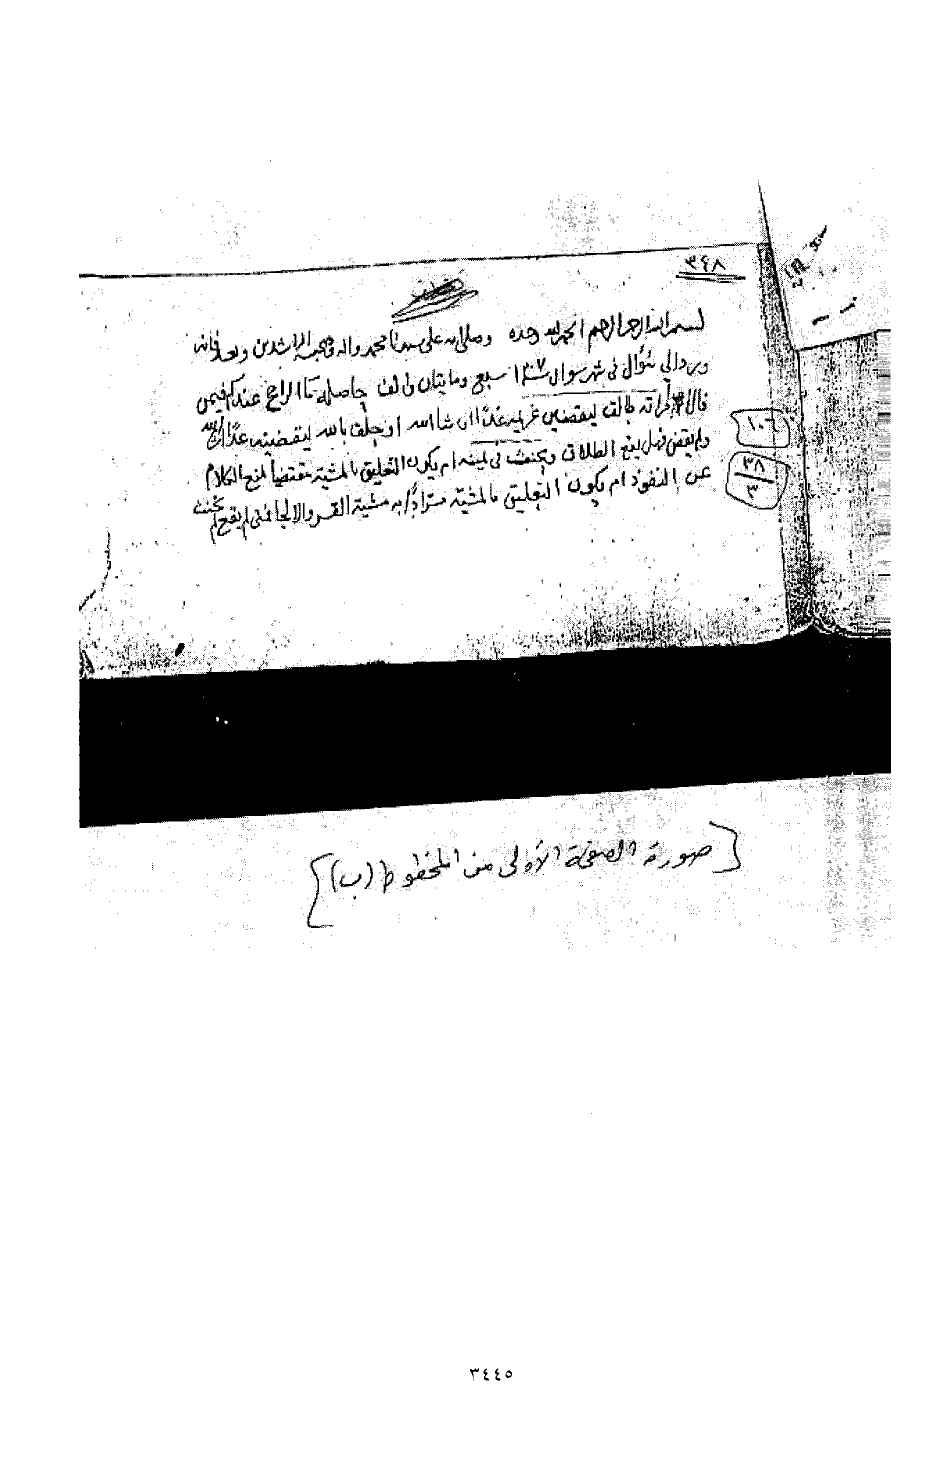 ٣٤٨
بسم الله الرحمن الرحيم الحمد لله وحده وصلى الله على سيدنا محمد واله وصحبه الراشدين وبعد فانه
ورد الي سؤال في شهر شوال سنة ١٢٣٧ سبع ومايتان والف حاصله ما الراجح عندكم فيمن
قال امراته طالق ليقضين غريمه غدًا ان شا الله او حلف بالله ليقضينه غدًا ان شا الله
ولم يقض فهل يقع الطلاق ويحنث في يمينه ام يكون التعليق بالمشية مقتضيا لمنع الكلام
عن النفوذ ام يكون التعليق بالمشية مرادًا به مشية القسر والالجا فمتى لم يقع لم يحنث
١٠٦
٣٨
٣
[صورة الصفحة الأولى من المخطوط (ب)]
٣٤٤٥